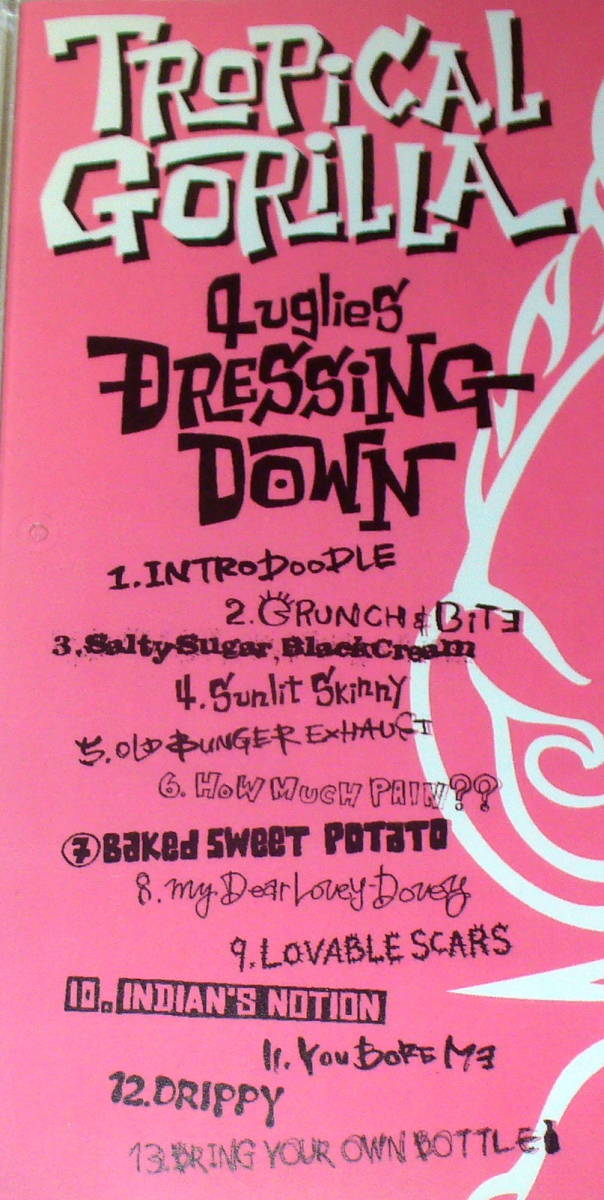 TROPiCAL
GORiLLA
4uglieS
DRESSiNG
DOWN
1.INTRODOODLE
2.CRUNCH & BiTE
3.Salty-Sugar, BlackCream
4.Sunlit Skinny
5.OLD BUNGER EXHAUST
6.HOW MUCH PAIN??
7 BaKed SWEET POTATO
8.My Dear Lovey-Dovey
9.LOVABLE SCARS
10.INDIAN'S NOTION
11.YOU BORE ME
12.DRIPPY
13.BRING YOUR OWN BOTTLE